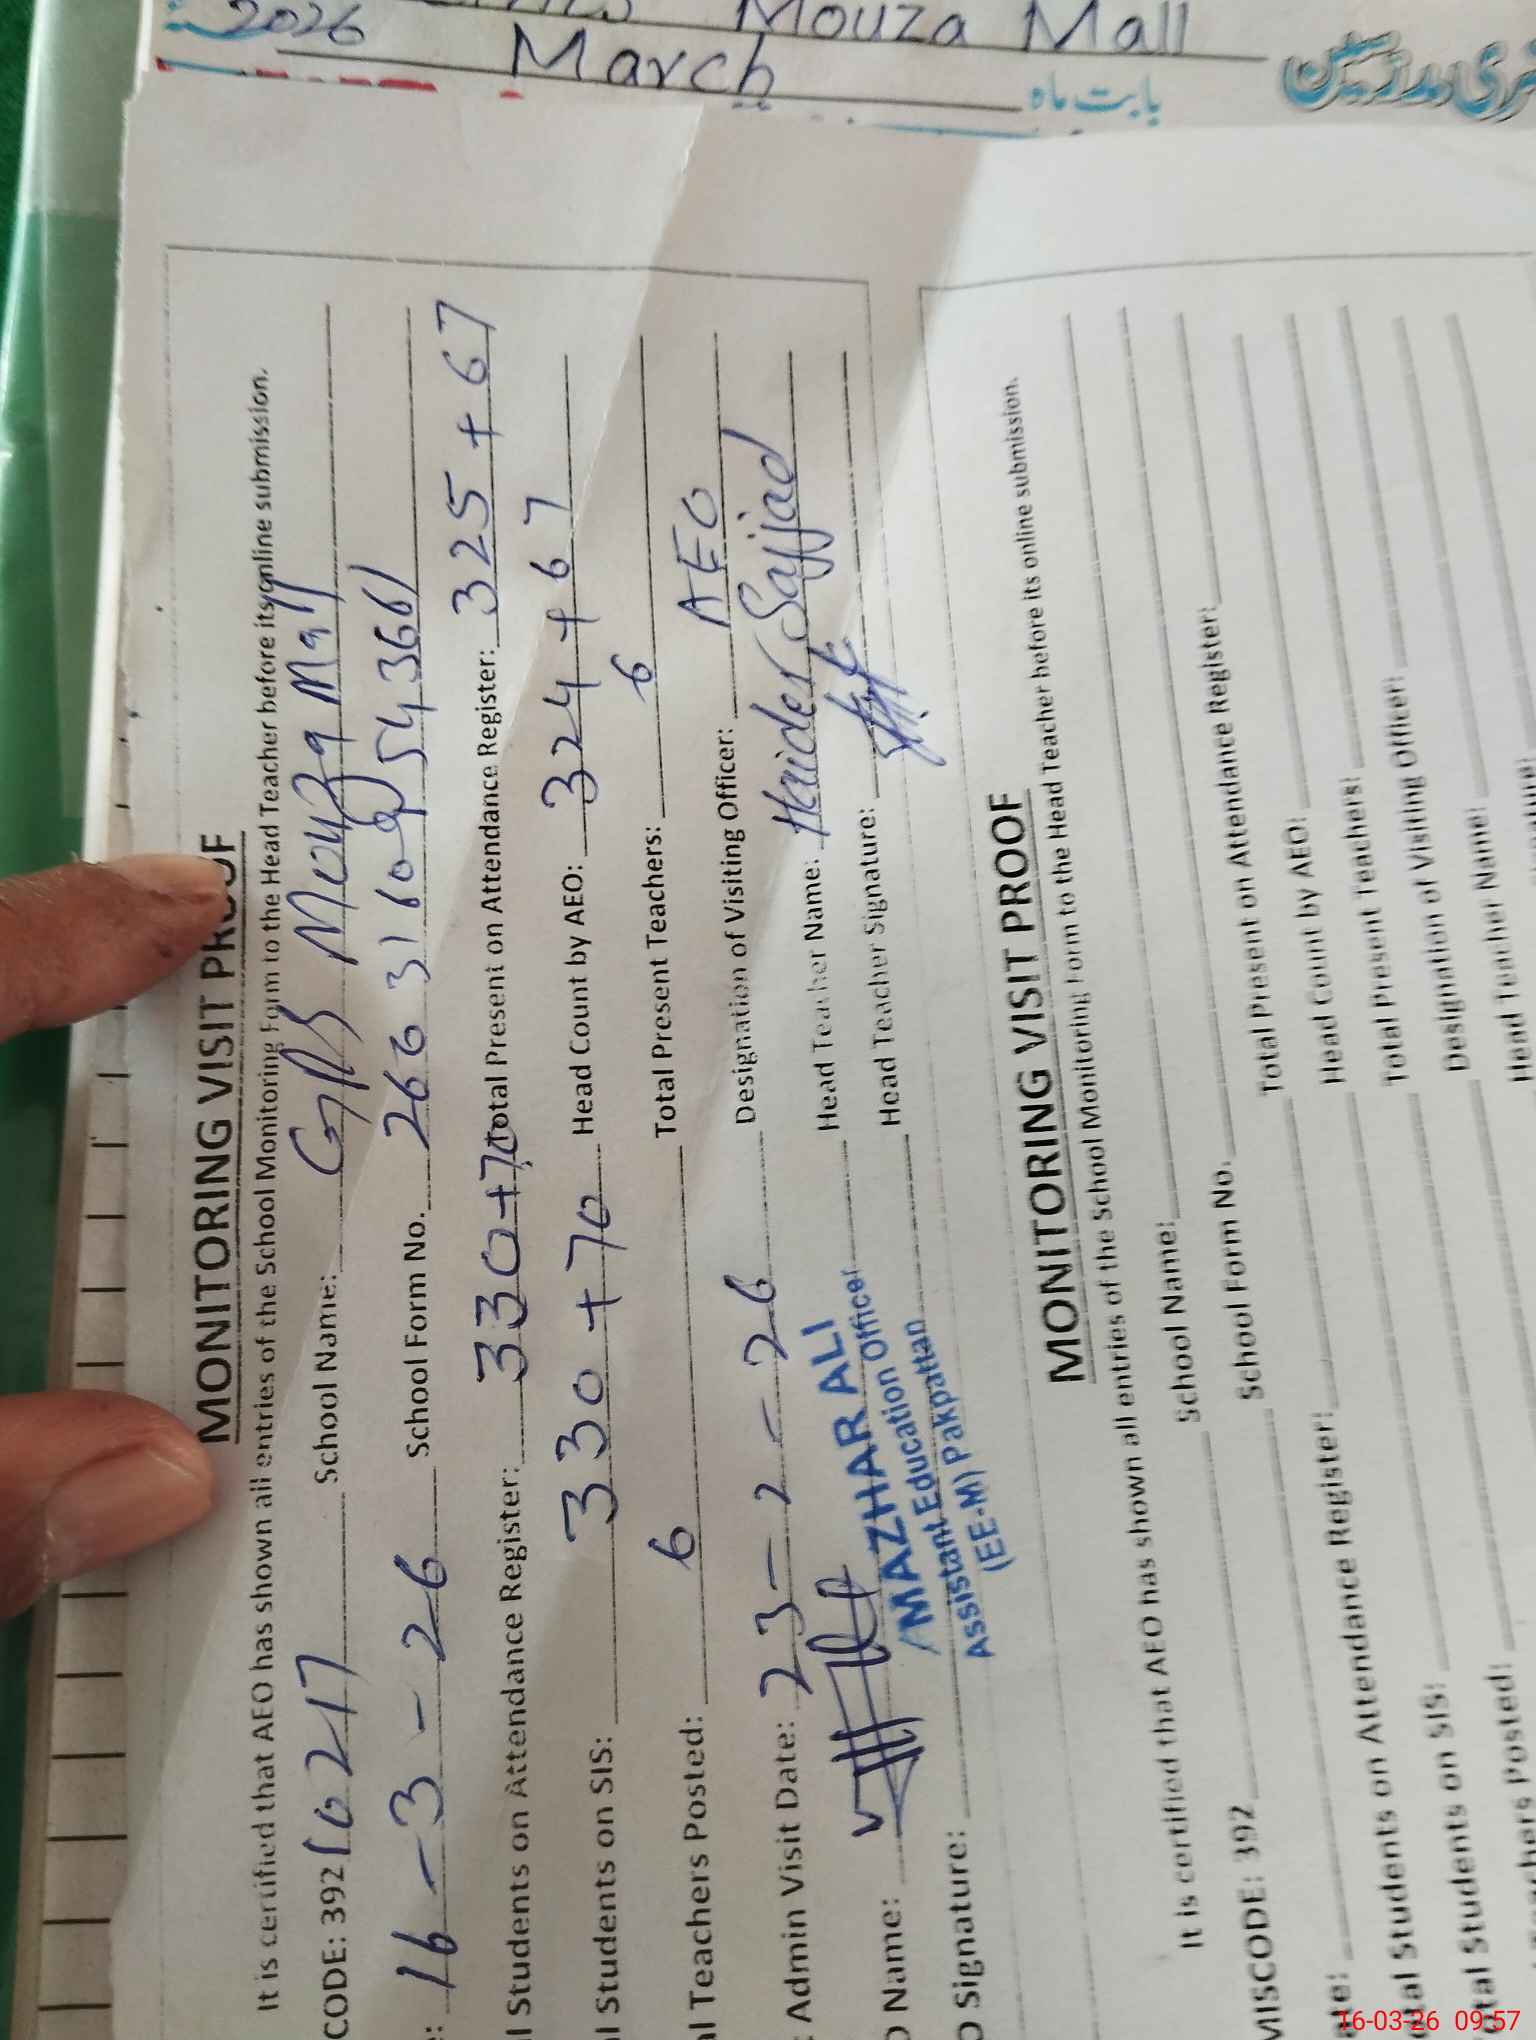 Mouza Mall
2026 March بابت ماہ
MONITORING VISIT PROOF
It is certified that AEO has shown all entries of the School Monitoring Form to the Head Teacher before its online submission.
CODE: 392 10217 School Name: GPS Mouza Mall
16-3-26 School Form No. 266 31
Students on Attendance Register: 330+70 Total Present on Attendance Register: 325 + 67
Students on SIS: 330 + 70 Head Count by AEO: 324 + 67
Teachers Posted: 6 Total Present Teachers: 6
Admin Visit Date: 23-2-26 Designation of Visiting Officer: AEO
Name: Head Teacher Name: Haider Sajjad
Signature: Head Teacher Signature:
MAZHAR ALI
Assistant Education Officer
(EE-M) Pakpattan
MONITORING VISIT PROOF
It is certified that AEO has shown all entries of the School Monitoring Form to the Head Teacher before its online submission.
MISCODE: 392 School Name:
School Form No.
Students on Attendance Register: Total Present on Attendance Register:
Students on SIS: Head Count by AEO:
Posted: Total Present Teachers:
Designation of Visiting Officer:
Head Teacher Name:
Head Teacher
16-03-26 09:57